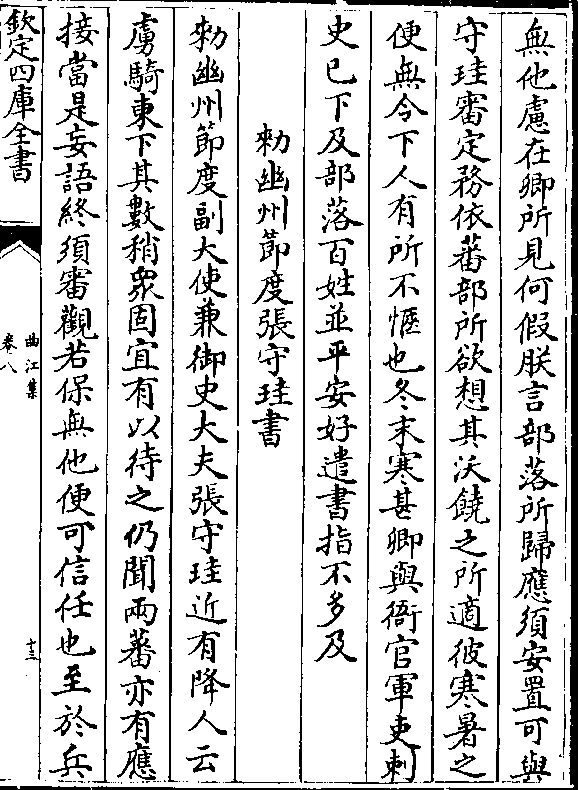 無他慮在卿所見何假朕言部落所歸應須安置可與
守珪審定務依蕃部所欲想其沃饒之所適彼寒暑之
便無令下人有所不愜也冬末寒甚卿與衙官軍吏刺
史已下及部落百姓並平安好遣書指不多及
勅幽州節度張守珪書
勅幽州節度副大使兼御史大夫張守珪近有降人云
虜騎東下其數稍衆固宜有以待之仍聞兩蕃亦有應
接當是妄語終須審觀若保無他便可信任也至於兵
欽定四庫全書
曲江集
卷八
十三